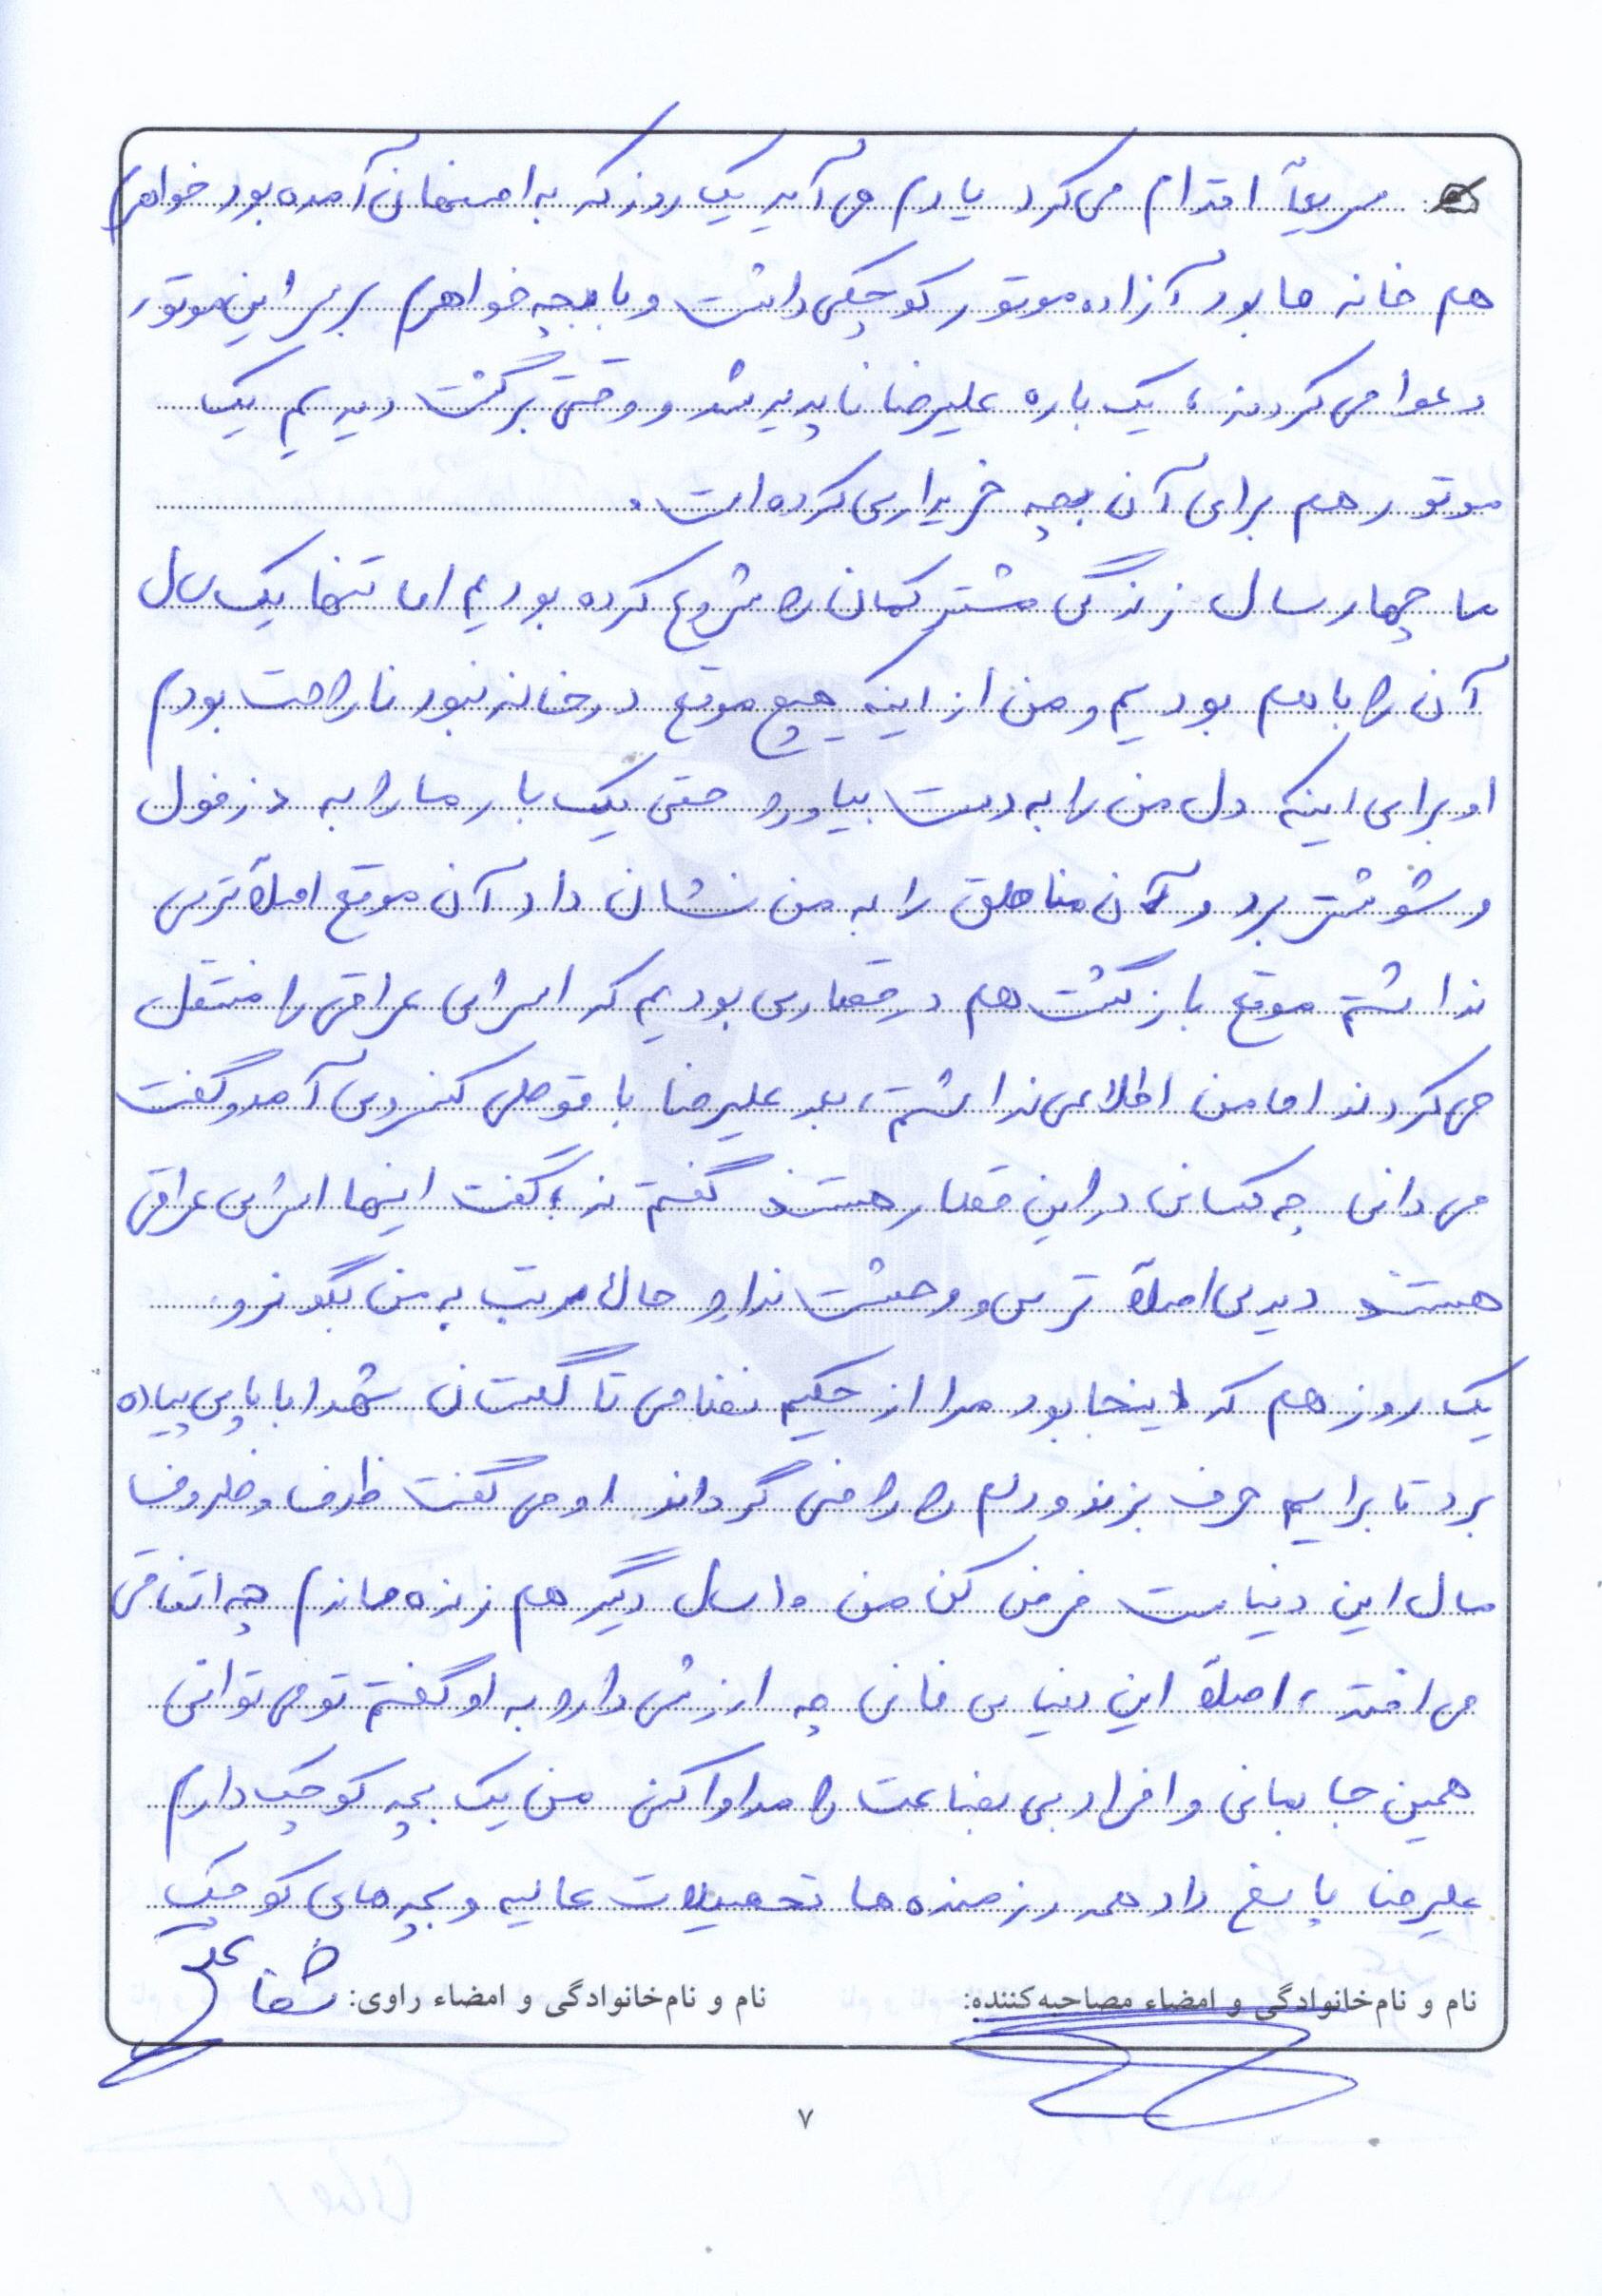 سریعاً اقدام می‌کرد یادم می‌آید یک روز که به اصفهان آمده بود خواهرم
هم خانه ما بود آزاده موتور کوچکی داشت و با بچه خواهرم بر سر این موتور
دعوا می‌کردند، یک باره علیرضا ناپدید شد و وقتی برگشت دیدیم یک
موتور هم برای آن بچه خریداری کرده است.
ما چهار سال زندگی مشترکمان را شروع کرده بودیم اما تنها یک سال
آن را با هم بودیم و من از اینکه هیچ موقع در خانه نبود ناراحت بودم
او برای اینکه دل من را به دست بیاورد حتی یک بار ما را به دزفول
و شوشتر برد و آن مناطق را به من نشان داد آن موقع اصلاً ترس
نداشتم موقع بازگشت هم در قطاری بودیم که اسرای عراقی را منتقل
می‌کردند اما من اطلاعی نداشتم، بعد علیرضا با قوطی کنسروی آمد و گفت
می‌دانی چه کسانی در این قطار هستند گفتم نه، گفت اینها اسرای عراقی
هستند دیدی اصلاً ترس و وحشت ندارد حالا مرتب به من بگو نرو.
یک روز هم که اینجا بود مرا از حکیم نظامی تا گلستان شهدا با پای پیاده
برد تا برایم حرف بزند و دلم را راضی گرداند او می‌گفت ظرف و ظروف
مال این دنیاست فرض کن من ۱۰ سال دیگر هم زنده ماندم چه اتفاقی
می‌افتد، اصلاً این دنیای فانی چه ارزشی دارد به او گفتم تو می‌توانی
همین جا بمانی و افراد بی بضاعت را مداوا کنی من یک بچه کوچک دارم
علیرضا پاسخ داد همه رزمنده ها تحصیلات عالیه و بچه‌های کوچک
نام و نام‌خانوادگی و امضاء مصاحبه‌کننده:
نام و نام‌خانوادگی و امضاء راوی:
۷